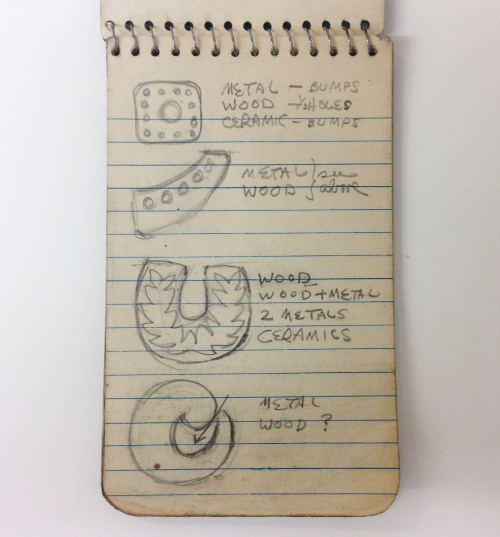 METAL – BUMPS
WOOD – ½ HOLES
CERAMIC – BUMPS
METAL } see
WOOD } above
WOOD
WOOD + METAL
2 METALS
CERAMICS
METAL
WOOD ?